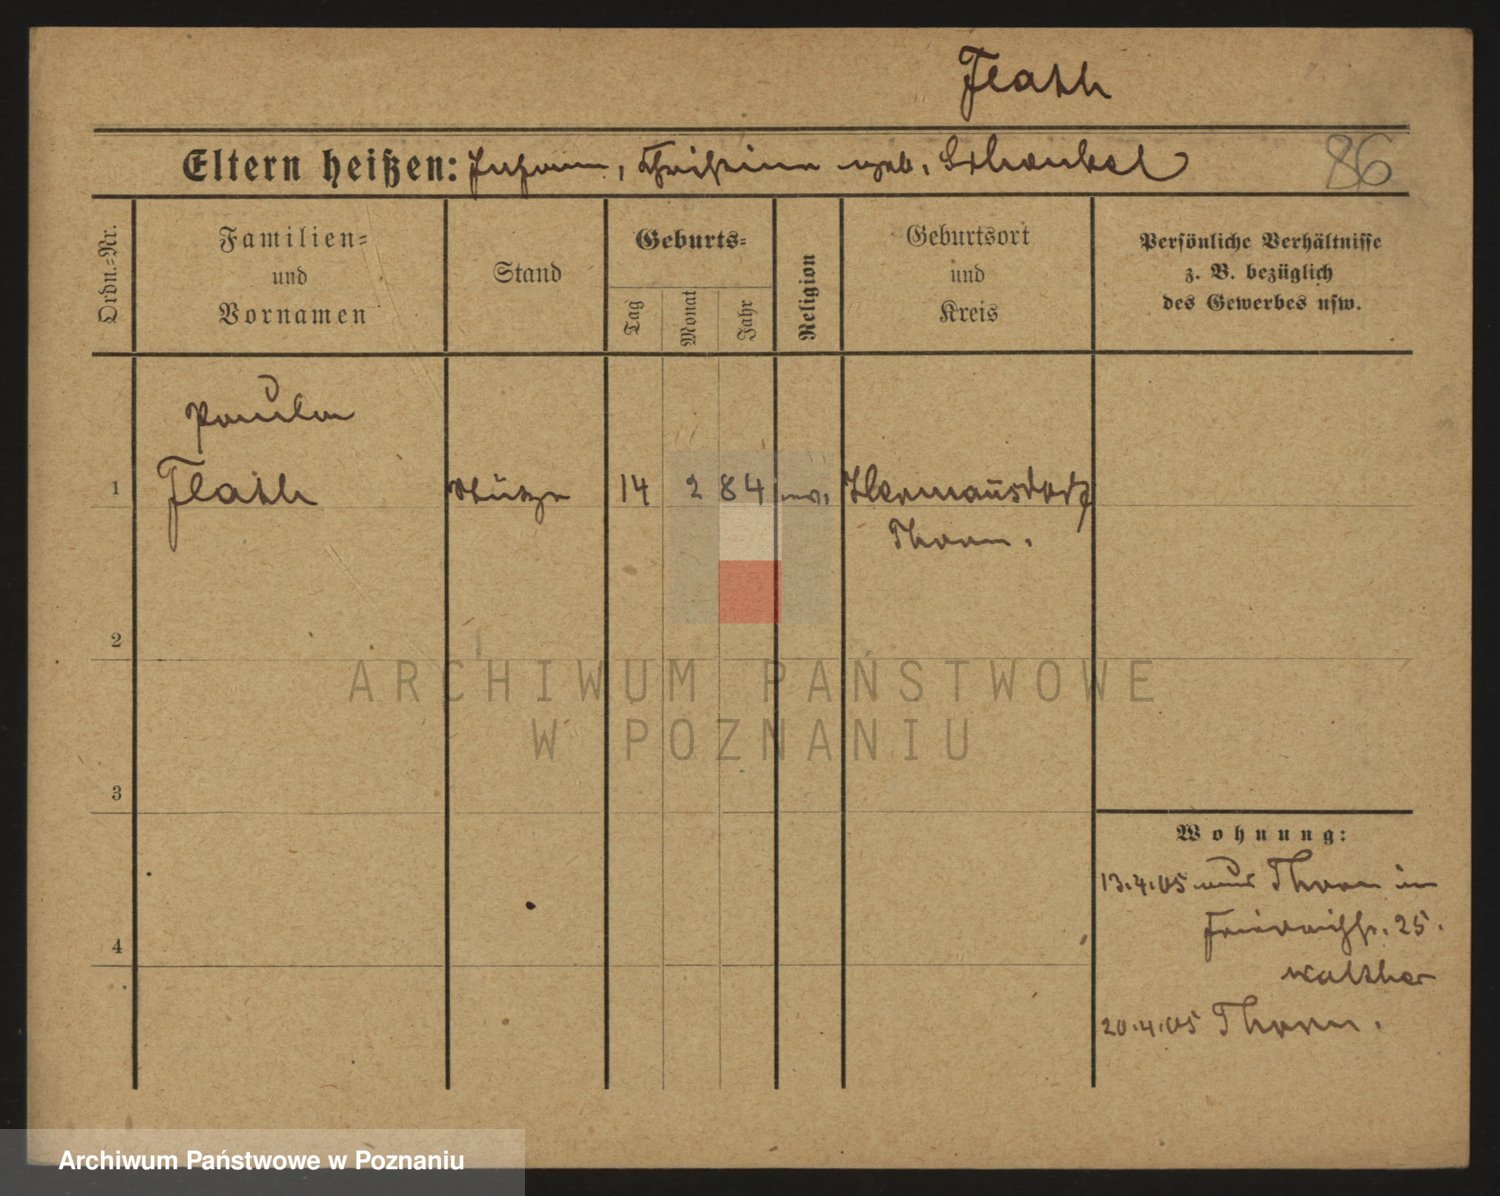 Flath
Eltern heißen: Johann, Christine geb. Schankel
86
Ordn.-Nr.
Familien-
und
Vornamen
Stand
Geburts-
Tag
Monat
Jahr
Religion
Geburtsort
und
Kreis
Persönliche Verhältnisse
z. B. bezüglich
des Gewerbes usw.
Paula
1 Flath Stütze 14 2 84 Hermannsdorf
Thorn.
2
ARCHIWUM PAŃSTWOWE
W POZNANIU
3
Wohnung:
13.4.05 aus Thorn in
Friedrichstr. 25.
Walther
4
20.4.05 Thorn.
Archiwum Państwowe w Poznaniu